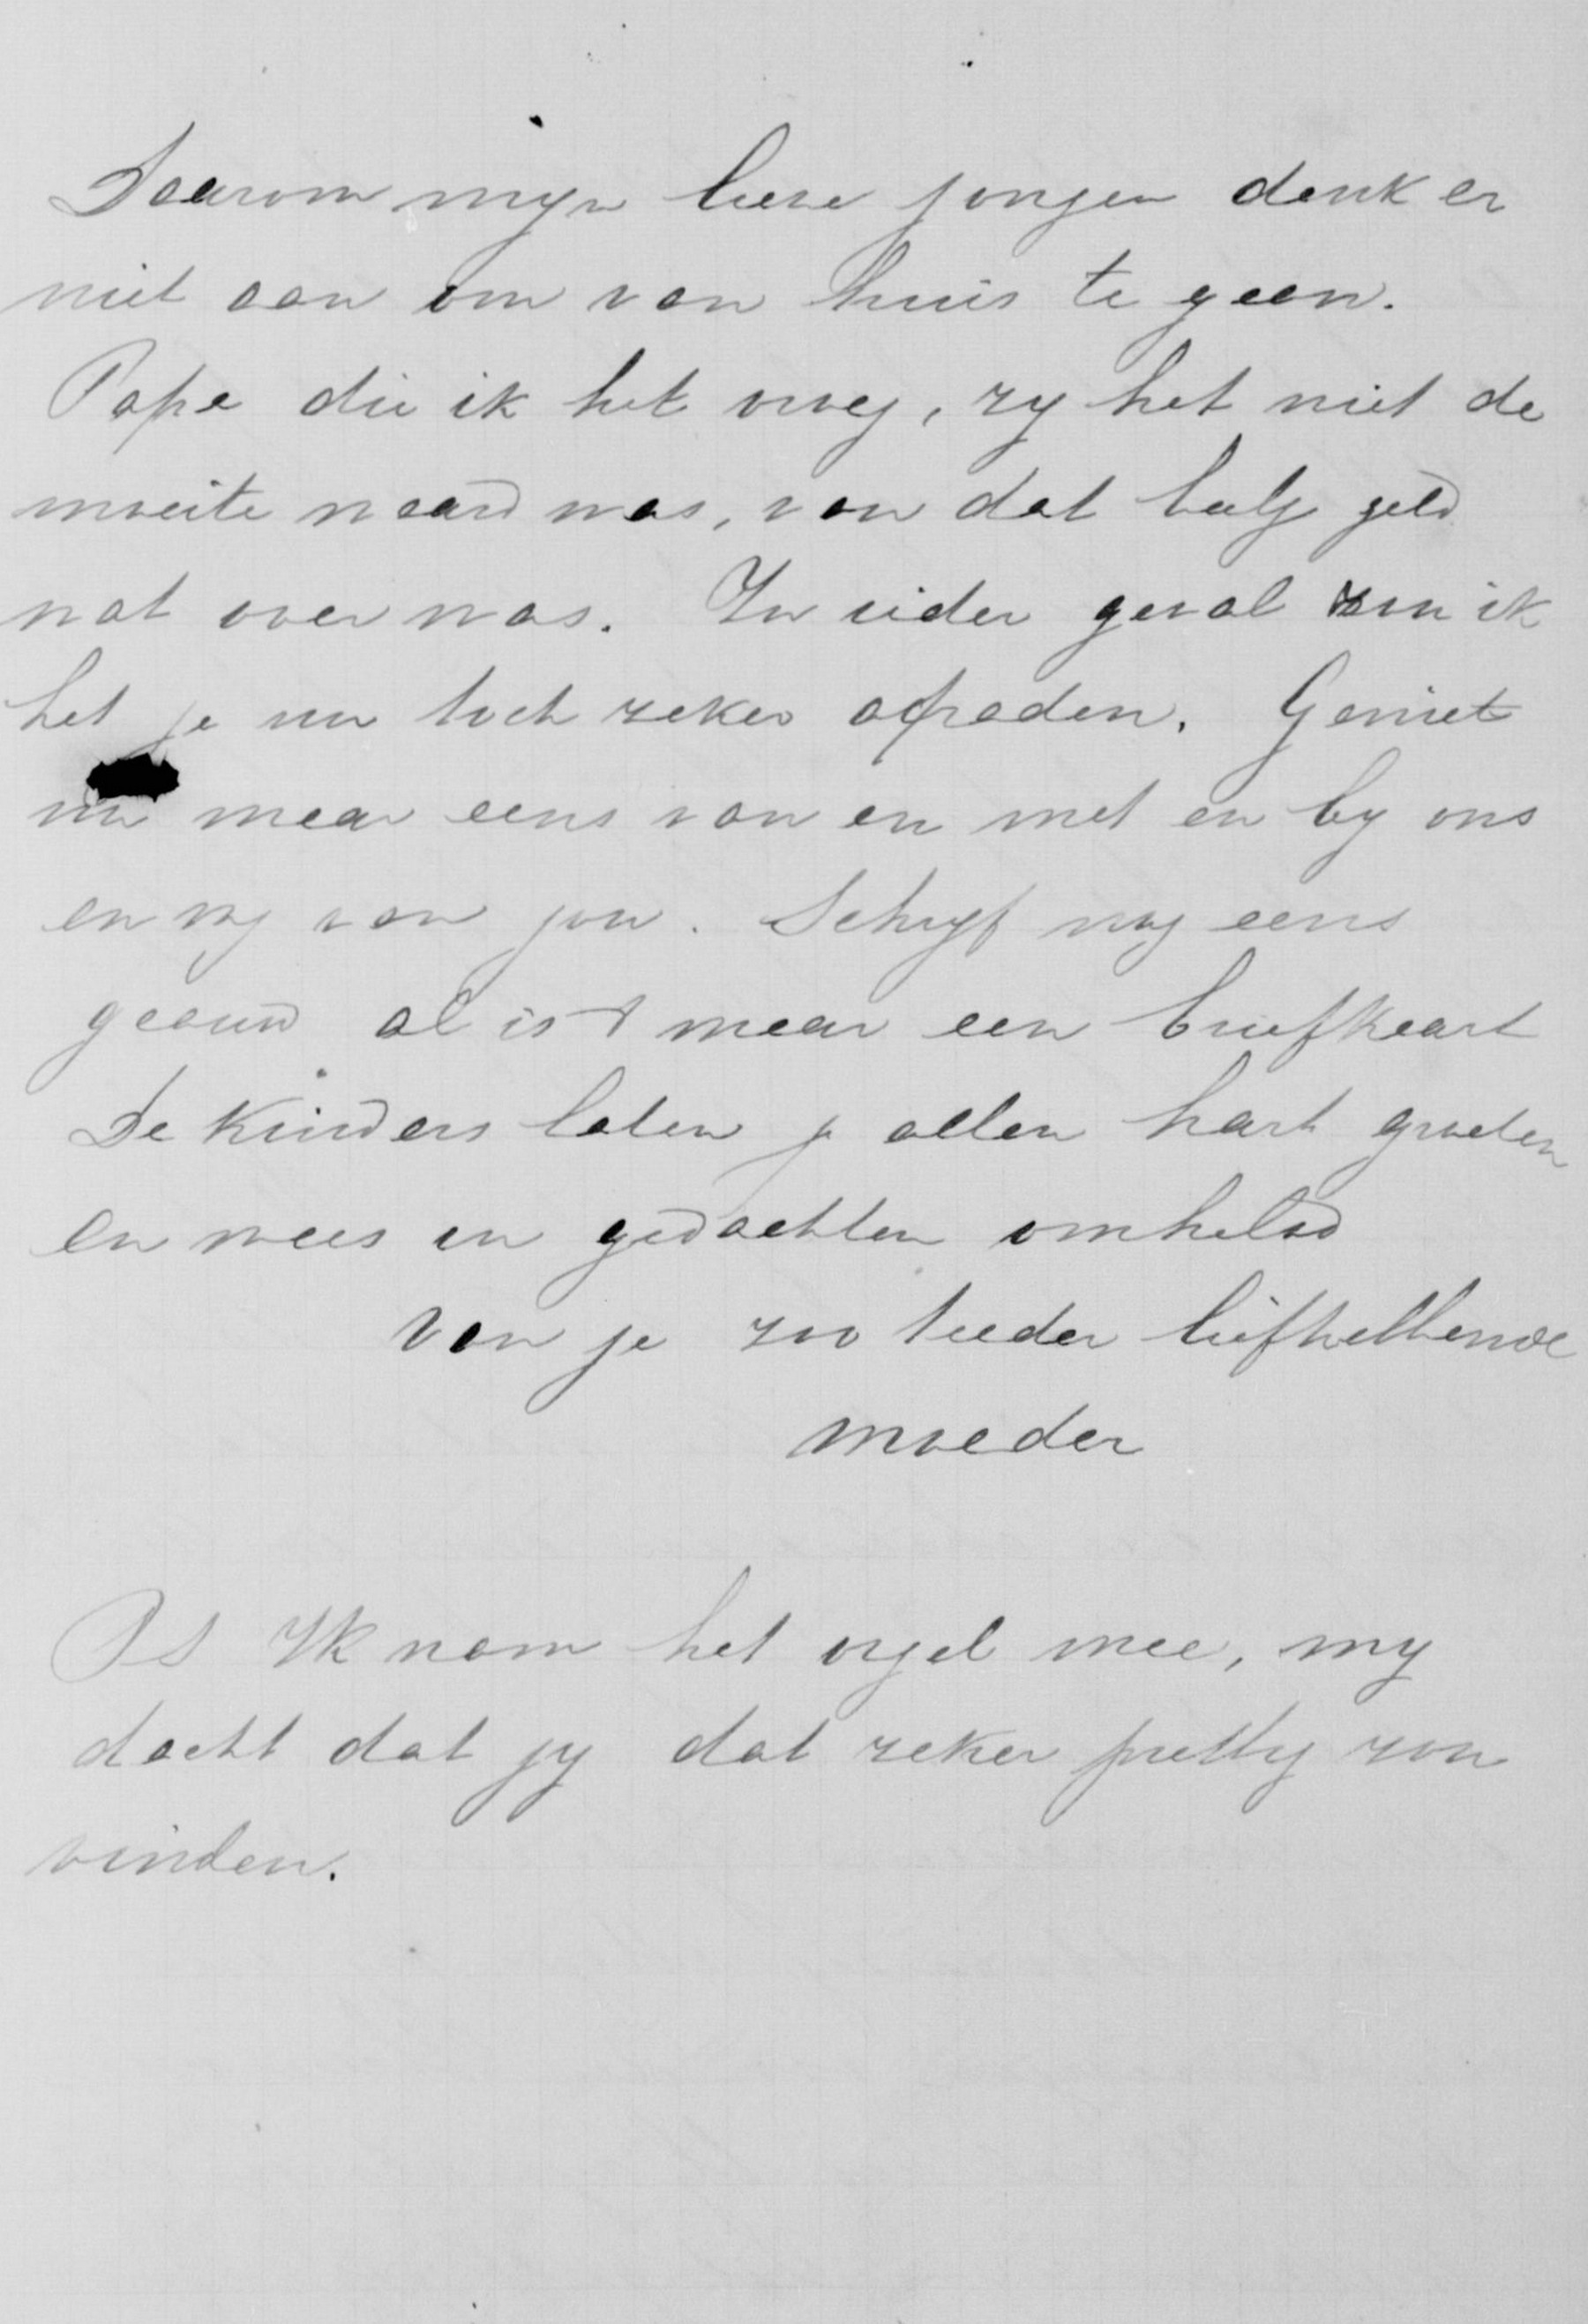 Daarom mijn lieve jongen denk er
niet aan om van huis te gaan.
Papa die ik het vroeg, zy het niet de
moeite waard was, van dat half geld
wat over was. In ieder geval zou ik
het je nu toch zeker afraden. Geniet
nu maar eens van en met en by ons
en wy van jou. Schryf nog eens
gaauw al is 't maar een briefkaart
De Kinders laten je allen hart groeten
en wees in gedachten omhelsd
van je zoo teeder liefhebbende
moeder
PS Ik nam het orgel mee, my
dacht dat jy dat zeker prettig zou
vinden.